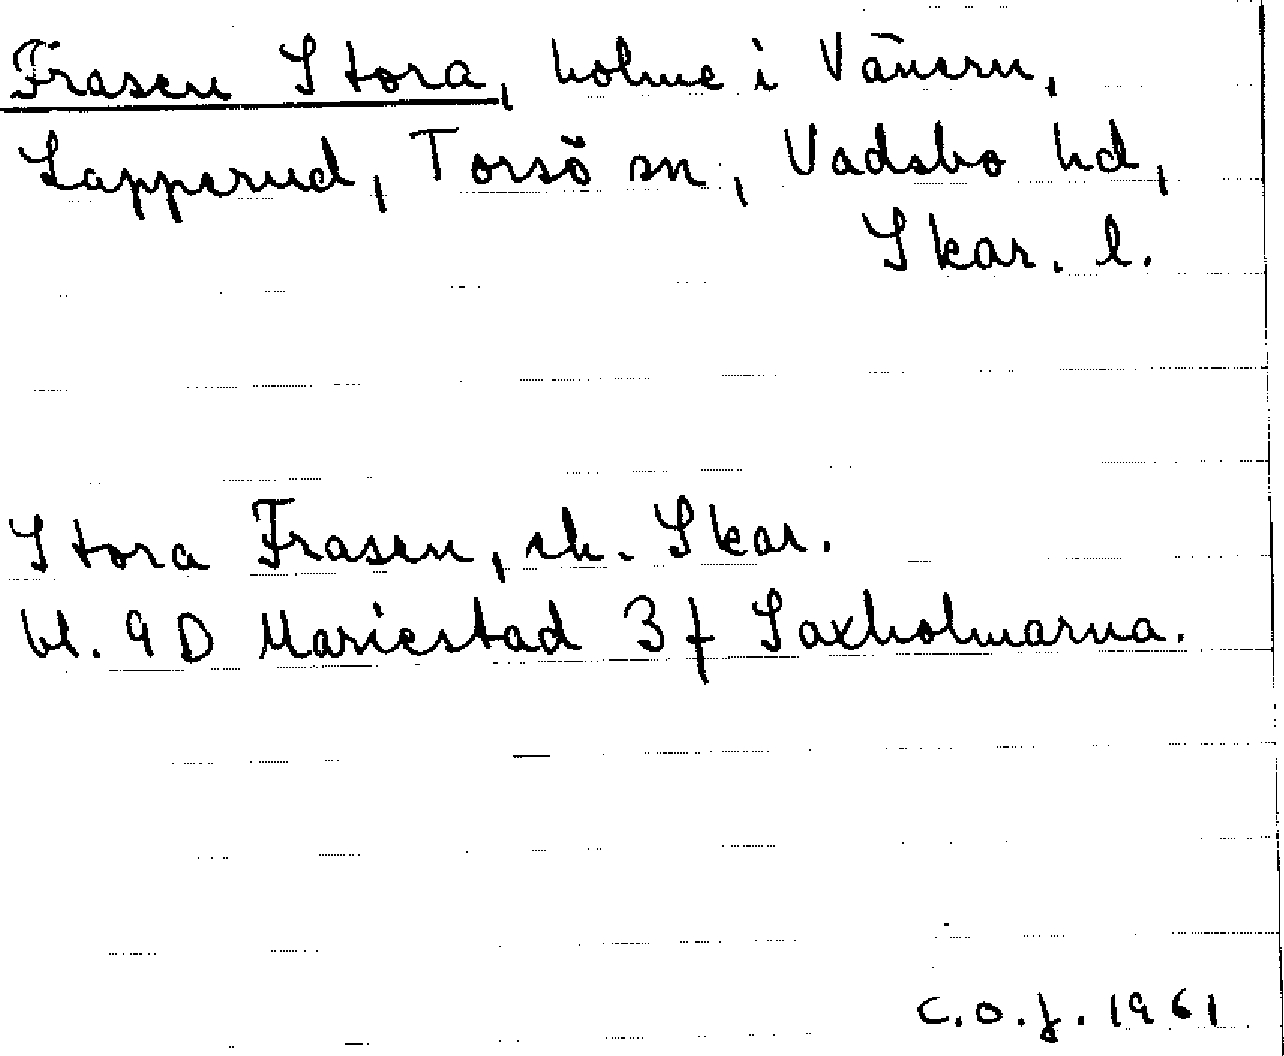 Frasen Stora, holme i Vänern,
Lapperud, Torsö sn, Vadsbo hd,
Skar. l.
Stora Frasen, ek. Skar.
bl. 9 D Mariestad 3 f Laxholmarna.
C.O.J. 1961